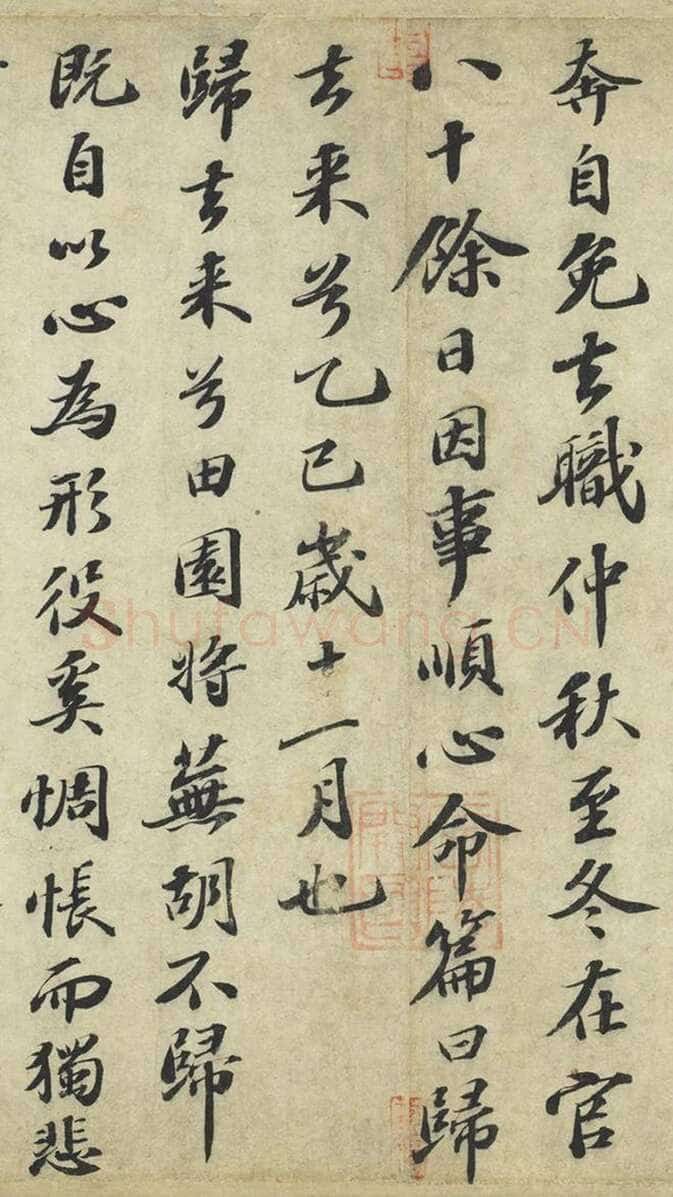 奔自免去職仲秋至冬在官
八十餘日因事順心命篇曰歸
去来兮乙巳歳十一月也
歸去来兮田園将蕪胡不歸
既自以心為形役奚惆悵而獨悲
Shufawang.CN